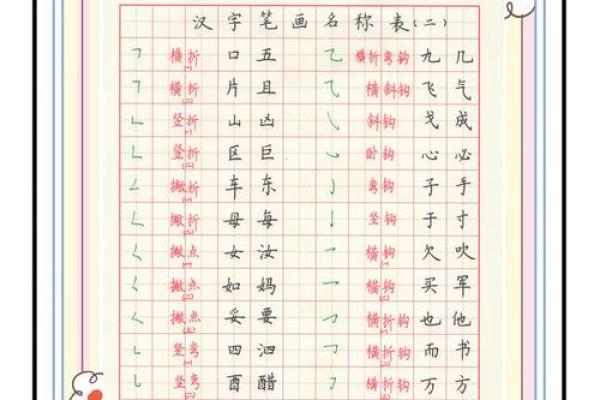 汉字笔画名称表(二)
㇕ 横折 口 五 ㇈ 横折弯钩 九 几
㇕ 横折 片 且 ⺄ 横斜钩 飞 气
㇗ 竖折 山 凶 ㇂ 斜钩 戈 成
㇗ 竖折 区 巨 ㇃ 卧钩 心 必
㇜ 撇折 车 东 ㇁ 弯钩 子 手
㇜ 撇折 母 每 亅 竖钩 于 寸
㇛ 撇点 女 汝 ㇖ 横钩 欠 吹
㇛ 撇点 如 妈 ㇖ 横钩 买 军
㇛ 撇点 妥 要 ㇆ 横折钩 也 他
㇄ 竖弯 四 泗 ㇆ 横折钩 而 书
㇄ 竖弯 酉 醋 ㇆ 横折钩 万 方